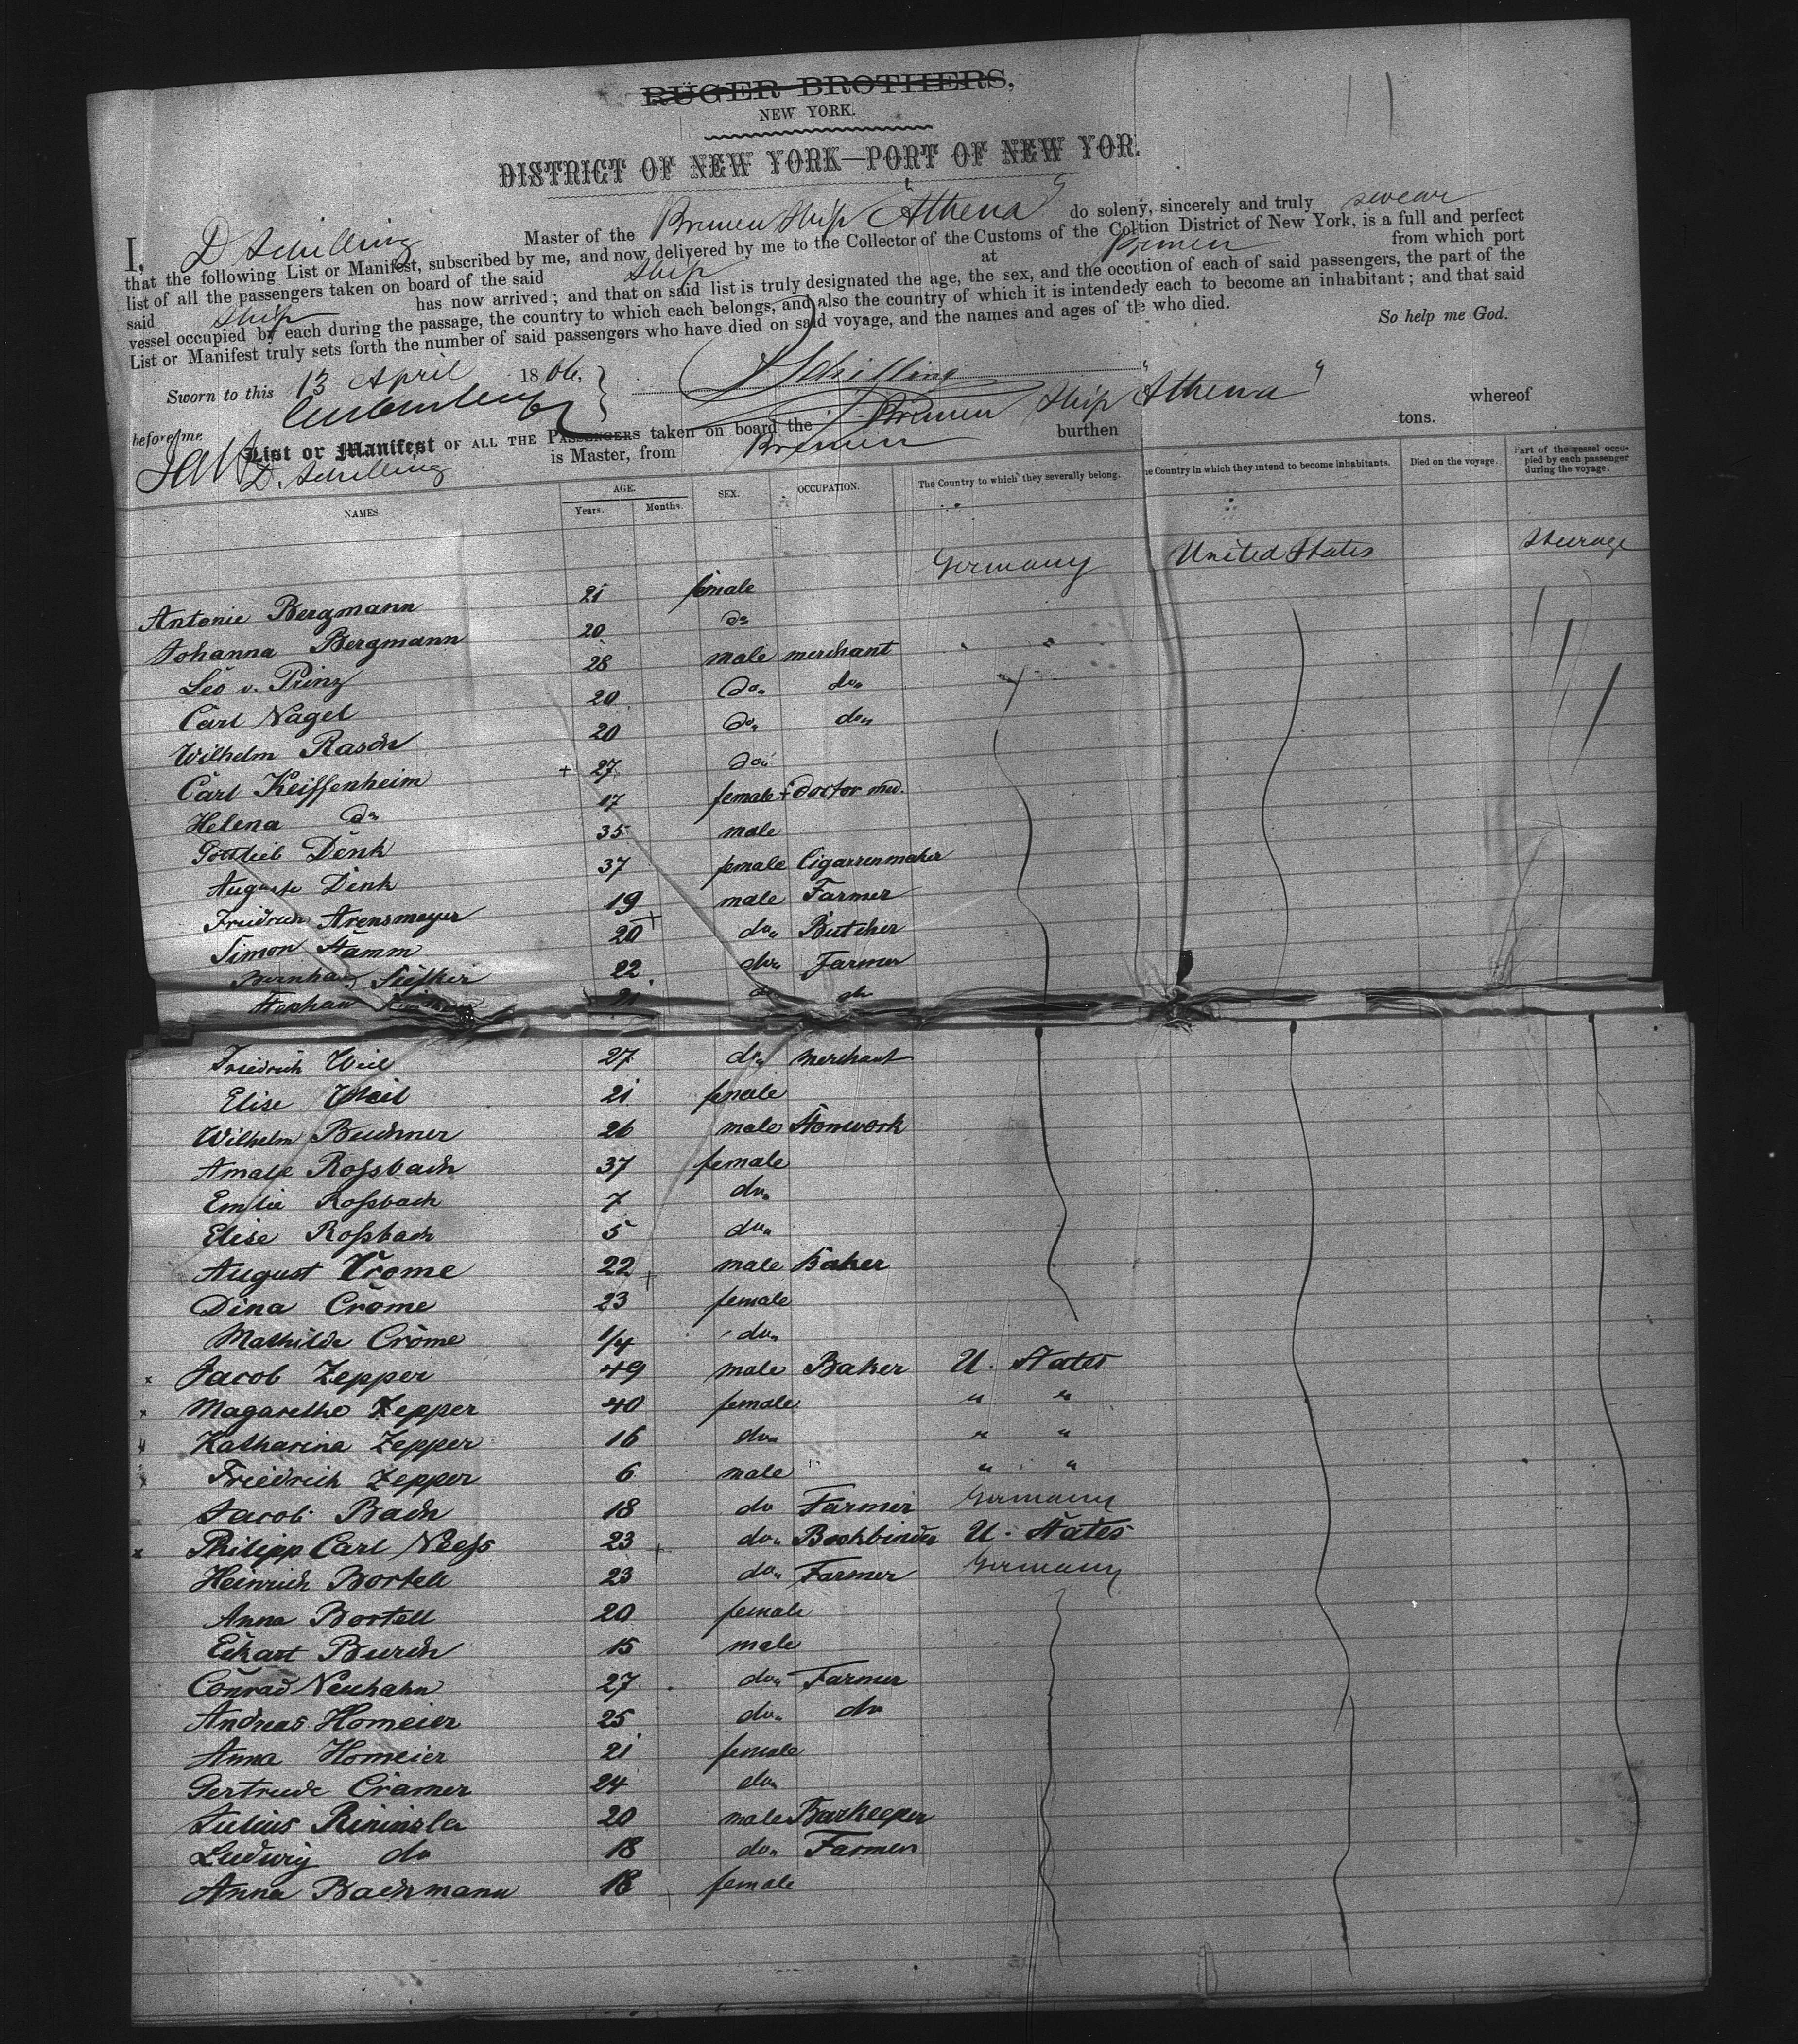 RÜGER BROTHERS,
NEW YORK.
DISTRICT OF NEW YORK—PORT OF NEW YOR
I, D Schilling Master of the Bremen Ship "Athena" do solen y, sincerely and truly swear
that the following List or Manifest, subscribed by me, and now delivered by me to the Collector of the Customs of the Col tion District of New York, is a full and perfect
list of all the passengers taken on board of the said ship at Bremen from which port
said ship has now arrived; and that on said list is truly designated the age, the sex, and the occu tion of each of said passengers, the part of the
vessel occupied by each during the passage, the country to which each belongs, and also the country of which it is intended y each to become an inhabitant; and that said
List or Manifest truly sets forth the number of said passengers who have died on said voyage, and the names and ages of th who died.
So help me God.
Sworn to this 13 April 1866, D Schilling
before me
List or Manifest OF ALL THE PASSENGERS taken on board the Bremen Ship "Athena" whereof
D. Schilling is Master, from Bremen burthen tons.
NAMES AGE. Years. Months. SEX. OCCUPATION. The Country to which they severally belong. he Country in which they intend to become inhabitants. Died on the voyage. Part of the vessel occupied by each passenger during the voyage.
Germany United States Steerage
Antonie Bergmann 21 female
Johanna Bergmann 20 do
Leo v. Prinz 28 male merchant " "
Carl Nagel 20 do" do"
Wilhelm Rasch 20 do" do"
Carl Keiffenheim + 27 do"
Helena do 17 female + doctor med.
Gottlieb Denk 35 male
Auguste Denk 37 female Cigarrenmaker
Friedrich Arensmeyer 19 male Farmer
Simon Stamm 20 + do" Butcher
Bernhard 22 do" Farmer
Stephan 21 do do
Friedrich Weil 27 do" merchant
Elise Weil 21 female
Wilhelm Buchner 26 male Stonwork
Amalie Roßbach 37 female
Emilie Roßbach 7 do"
Elise Roßbach 5 do"
August Crome 22 male Baker
Dina Crome 23 female
Mathilde Crome 1/4 do"
x Jacob Zepper 49 male Baker U. States
x Magarethe Zepper 40 female " "
x Katharina Zepper 16 do" " "
x Friedrich Zepper 6 male " "
Jacob Bach 18 do Farmer Germany
x Philipp Carl Neeß 23 do" Bookbinder U. States
Heinrich Bortell 23 do" Farmer Germany
Anna Bortell 20 female
Eckart Burch 15 male
Conrad Neuhahn 27 do" Farmer
Andreas Homeier 25 do" do
Anna Homeier 21 female
Gertrude Cramer 24 do"
Julius 20 male Barkeeper
Ludwig do 18 do" Farmer
Anna Bachmann 18 female